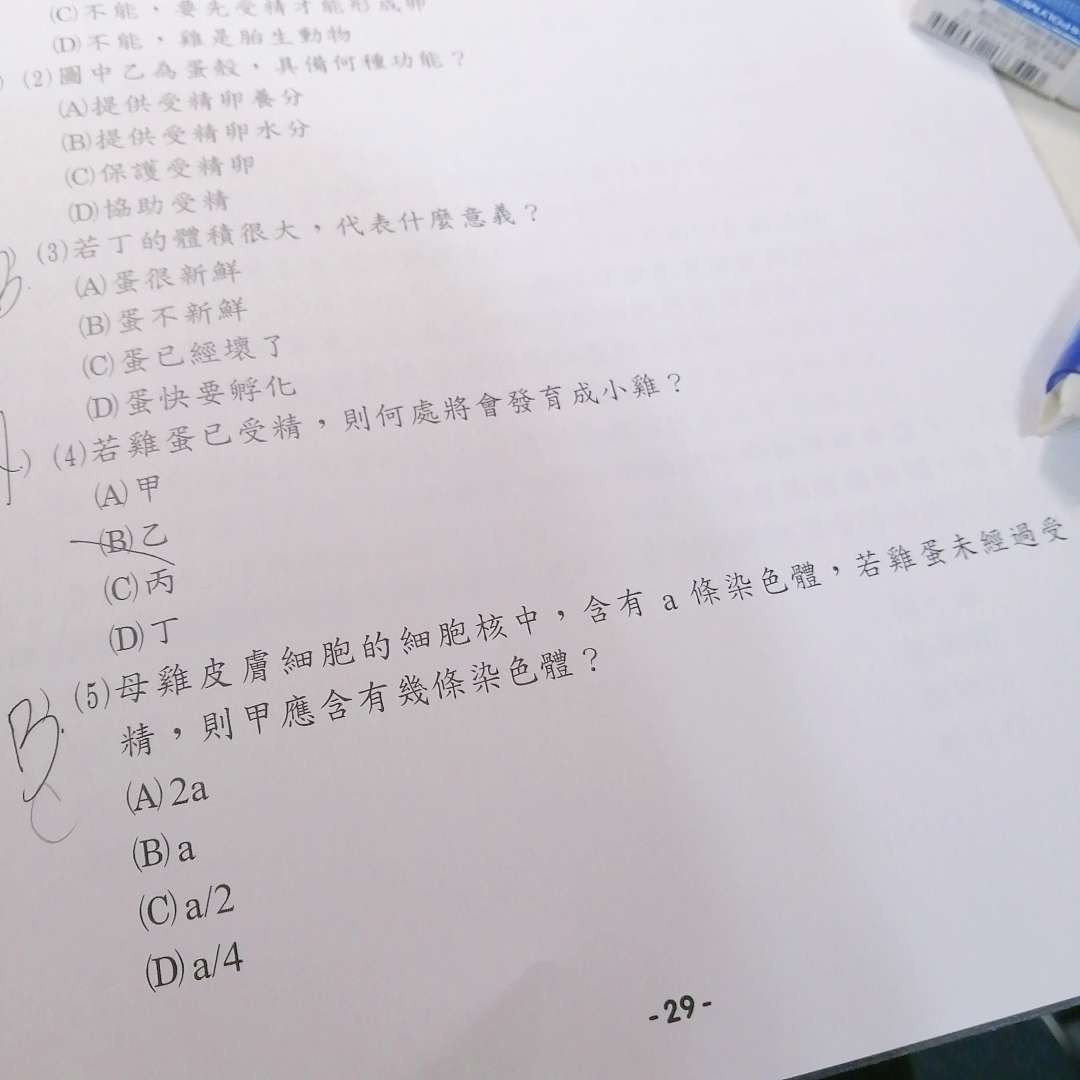 (C)不能，要先受精才能形成卵
(D)不能，雞是胎生動物
(2)圖中乙為蛋殼，具備何種功能？
(A)提供受精卵養分
(B)提供受精卵水分
(C)保護受精卵
(D)協助受精
B. (3)若丁的體積很大，代表什麼意義？
(A)蛋很新鮮
(B)蛋不新鮮
(C)蛋已經壞了
(D)蛋快要孵化
A.) (4)若雞蛋已受精，則何處將會發育成小雞？
(A)甲
(B)乙
(C)丙
(D)丁
B. ) (5)母雞皮膚細胞的細胞核中，含有 a 條染色體，若雞蛋未經過受
精，則甲應含有幾條染色體？
C
(A)2a
(B)a
(C)a/2
(D)a/4
-29-